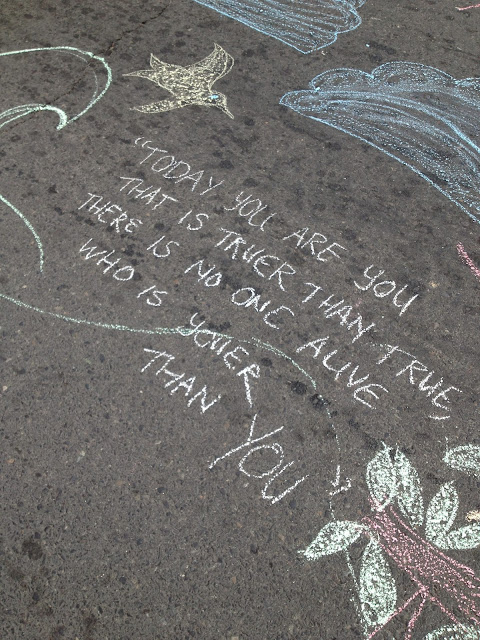 "TODAY YOU ARE YOU
THAT IS TRUER THAN TRUE,
THERE IS NO ONE ALIVE
WHO IS YOUER
THAN YOU